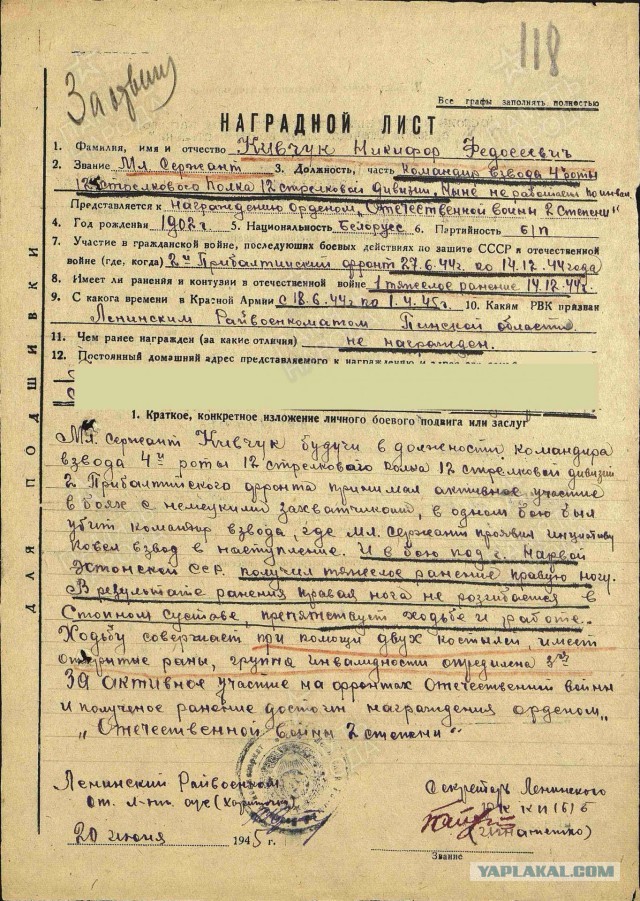 118
Все графы заполнять полностью
НАГРАДНОЙ ЛИСТ
1. Фамилия, имя и отчество Кивчук Никифор Федосеевич
2. Звание Мл. Сержант 3. Должность, часть Командир взвода 4й роты
12 стрелкового полка 12 стрелковой дивизии, Ныне не работает инвал.
Представляется к Награждению Орденом „Отечественной войны 2 степени"
4. Год рождения 1902 г 5. Национальность Белорусс 6. Партийность б/п
7. Участие в гражданской войне, последующих боевых действиях по защите СССР и отечественной
войне (где, когда) 2й Прибалтийский фронт 27.6.44г. по 14.12.44 года
8. Имеет ли ранения и контузии в отечественной войне 1 тяжелое ранение 14.12.44г.
9. С какога времени в Красной Армии с 18.6.44г по 1.4.45г. 10. Каким РВК призван
Ленинским Райвоенкоматом Пинской области
11. Чем ранее награжден (за какие отличия) не награжден.
12. Постоянный домашний адрес представляемого к награждению
1. Краткое, конкретное изложение личного боевого подвига или заслуг
Мл. сержант Кивчук будучи в должности командира
взвода 4й роты 12 стрелкового полка 12 стрелковой дивизии
2 Прибалтийского фронта принимал активное участие
в боях с немецкими захватчиками, в одном бою был
убит командир взвода, где Мл. Сержант проявил инициативу
повел взвод в наступление. И в бою под г. Нарвой
Эстонской ССР. получил тяжелое ранение правую ногу.
В результате ранения правая нога не розгибается в
Стопном суставе, препятствует ходьбе и работе.
Ходьбу совершает при помощи двух костылей, имеет
открытые раны, группа инвалидности определена 3я
За активное участие на фронтах Отечественной войны
и полученое ранение достоин награждения орденом „
„Отечественной войны 2 степени"
Ленинский Райвоенком
ст. л-нт
20 июня 1945 г.
Секретарь Ленинского
РК КП(б)б
Звание
ДЛЯ ПОДШИВКИ
YAPLAKAL.COM